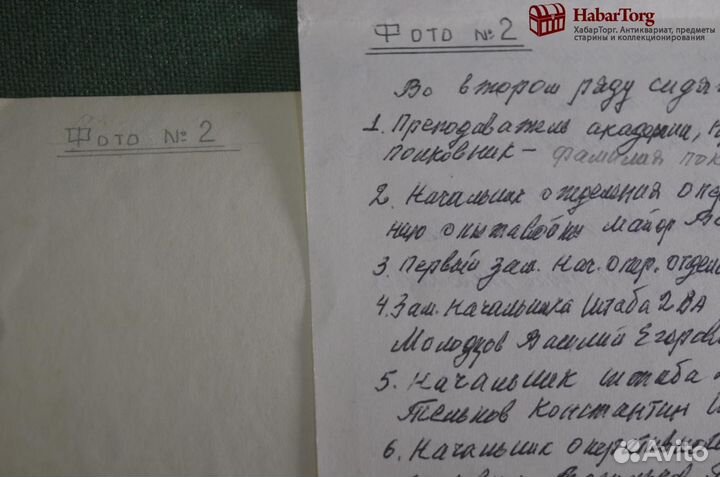 HabarTorg
ХабарТорг. Антиквариат, предметы
старины и коллекционирования
Фото № 2
Фото № 2
Во втором ряду сидят
1. Преподаватель академии,
полковник – фамилия
2. Начальник отделения
майор
3. Первый зам. нач. опер. отдела
4. Зам. Начальника Штаба 2 ВА
Молодцов Василий Егоров
5. Начальник штаба
Тельнов Константин
6. Начальник оперативного
Avito